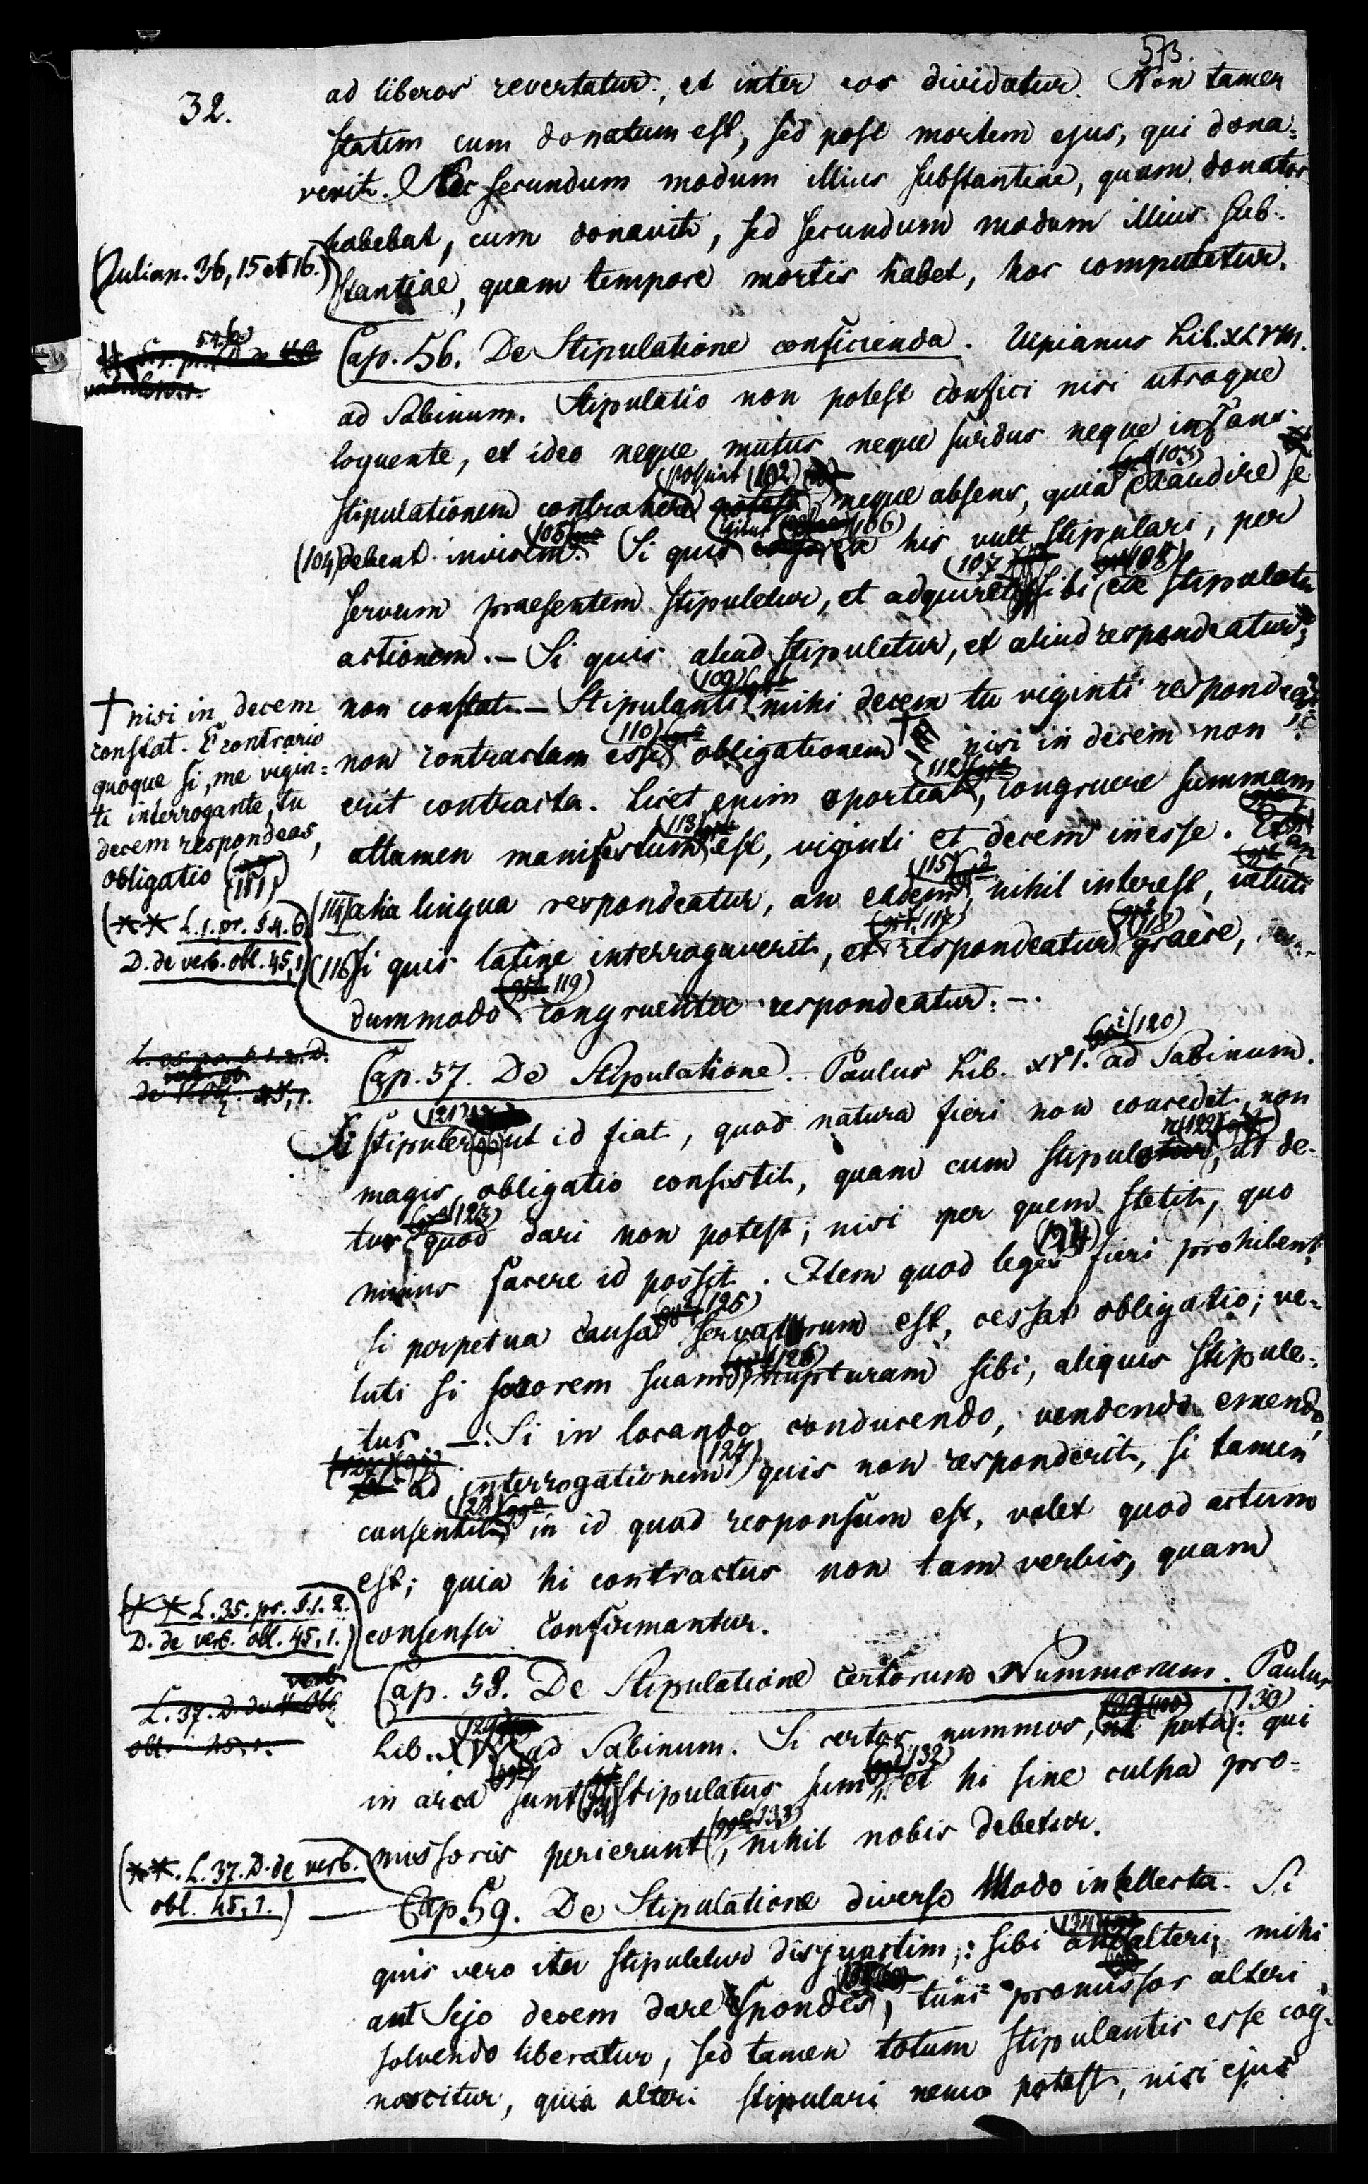 573.
32.
ad liberos revertatur, et inter eos dividatur. Non tamen
statim cum donatum est, sed post mortem ejus, qui dona=
verit. Nec secundum modum illius substantiae, quam donator
habebat, cum donavit, sed secundum modum illius sub=
(Julian. 36, 15 et 16.)
stantiae, quam tempore mortis habet, hoc computetur.
Cap. 56. De Stipulatione conficienda. Ulpianus Lib. XLVIII.
ad Sabinum. Stipulatio non potest confici nisi utroque
loquente, et ideo neque mutus neque surdus neque infans
stipulationem contrahere possunt (102) neque absens, quia (103) exaudire se
(104) debent invicem (105). Si quis igitur (106) ex his vult stipulari, per
servum praesentem stipuletur, et adquiret (107) sibi (108) ex stipulatu
actionem. — Si quis aliud stipuletur, et aliud respondeatur,
non constat. — Stipulanti (109) mihi decem tu viginti respondeas
non contractam esse (110) obligationem † nisi in decem non
† nisi in decem
constat. E contrario
quoque si, me vigin=
ti interrogante, tu
decem respondeas,
obligatio (111)
erit contracta. Licet enim oporteat (112), congruere summam
attamen manifestum (113) est, viginti et decem inesse.
(114) alia lingua respondeatur, an eadem (115), nihil interest,
(** L. 1. pr. §. 4. 6.
D. de verb. obl. 45, 1)
(116) si quis latine interrogaverit, et (117) respondeatur (118) graece,
dummodo (119) congruenter respondeatur. —.
Cap. 57. De Stipulatione. Paulus Lib. XVI. (120) ad Sabinum.
Si stipuler (121) ut id fiat, quod natura fieri non concedit, non
magis obligatio consistit, quam cum stipuler (122), ut de-
tur (123) quod dari non potest; nisi per quem stetit, quo
minus facere id possit. Item quod leges (124) fieri prohibent,
si perpetua causa (125) servaturum est, cessat obligatio; ve=
luti si sororem suam (126) nupturam sibi, aliquis stipule=
tur —. Si in locando conducendo, vendendo emendo,
ad interrogationem (127) quis non responderit, si tamen
consentitur (128) in id quod responsum est, valet quod actum
est; quia hi contractus non tam verbis, quam
(** L. 35. pr. §. 1. 2.
D. de verb. obl. 45, 1.)
consensu confirmantur.
Cap. 58. De Stipulatione certorum Nummorum. Paulus
Lib. (129) ad Sabinum. Si certos nummos, ut puta (130): qui
in arca sunt stipulatus sum (132), et hi sine culpa pro=
missoris perierunt (133), nihil nobis debetur.
(** L. 37. D. de verb.
obl. 45, 1.)
Cap. 59. De Stipulatione diverso Modo intellecta. Si
quis vero ita stipuletur disjunctim: sibi aut (134) alteri, mihi
aut Sejo decem dare spondes, tunc promissor alteri
solvendo liberatur, sed tamen totum stipulantis esse cog=
noscitur, quia alteri stipulari nemo potest, nisi ejus